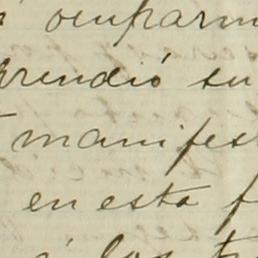 ocuparm
rendió su
manifest
en esta f
á los tr